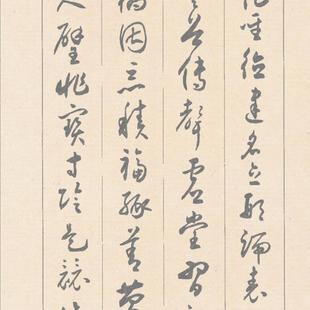 聖德建名立形端表
谷傳聲虛堂習
禍因惡積福緣善慶
尺璧非寶寸陰是競